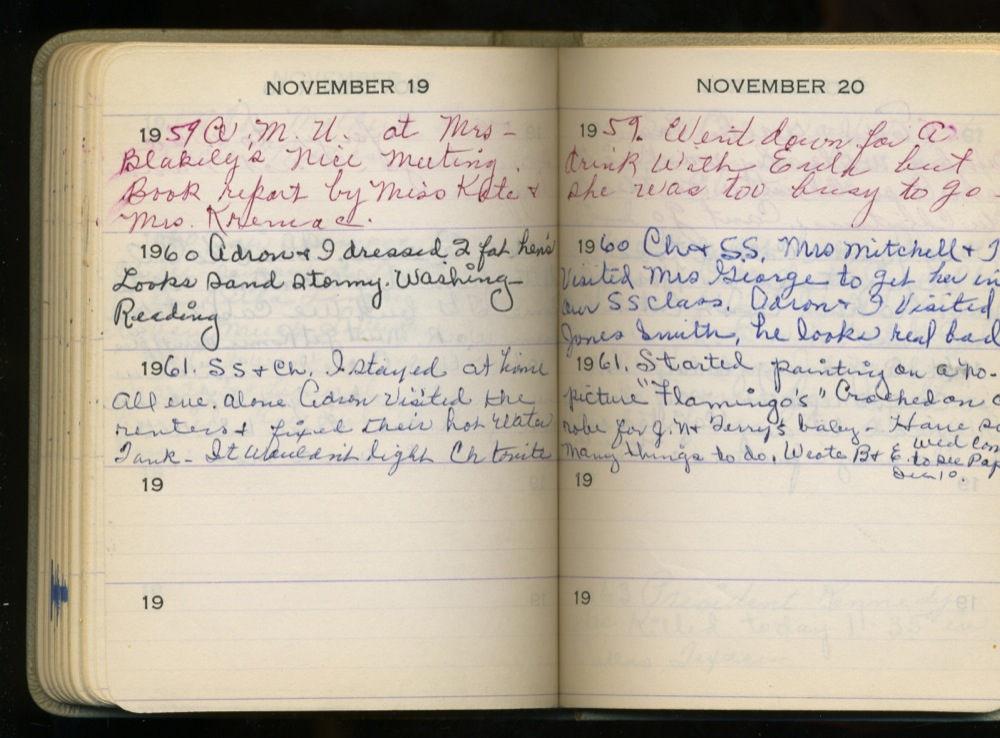 NOVEMBER 19
1959 W. M. U. at Mrs-
Blakely's Nice meeting.
Book report by Miss Kate &
Mrs.
1960 Adron & I dressed 2 fat hens
Looks sand stormy. Washing-
Reading
1961. SS & Ch. I stayed at home
all eve. alone Adron visited the
renters & fixed their hot water
Tank- It wouldn't light Ch tonite
19
19
NOVEMBER 20
1959. Went down for a
drink with but
she was too busy to go-
1960 Ch & SS. Mrs Mitchell & I
Visited Mrs George to get her in
our SS class. Adron & I Visited
Jones Smith, he looks real bad
1961. Started painting on a
picture "Flamingo's" Crocheted on
robe for J.N & Terry's baby- Have so
many things to do. Wrote B & E. Wed
to see
Dec 10.
19
19
President Kennedy
killed today 11:35
Texas-